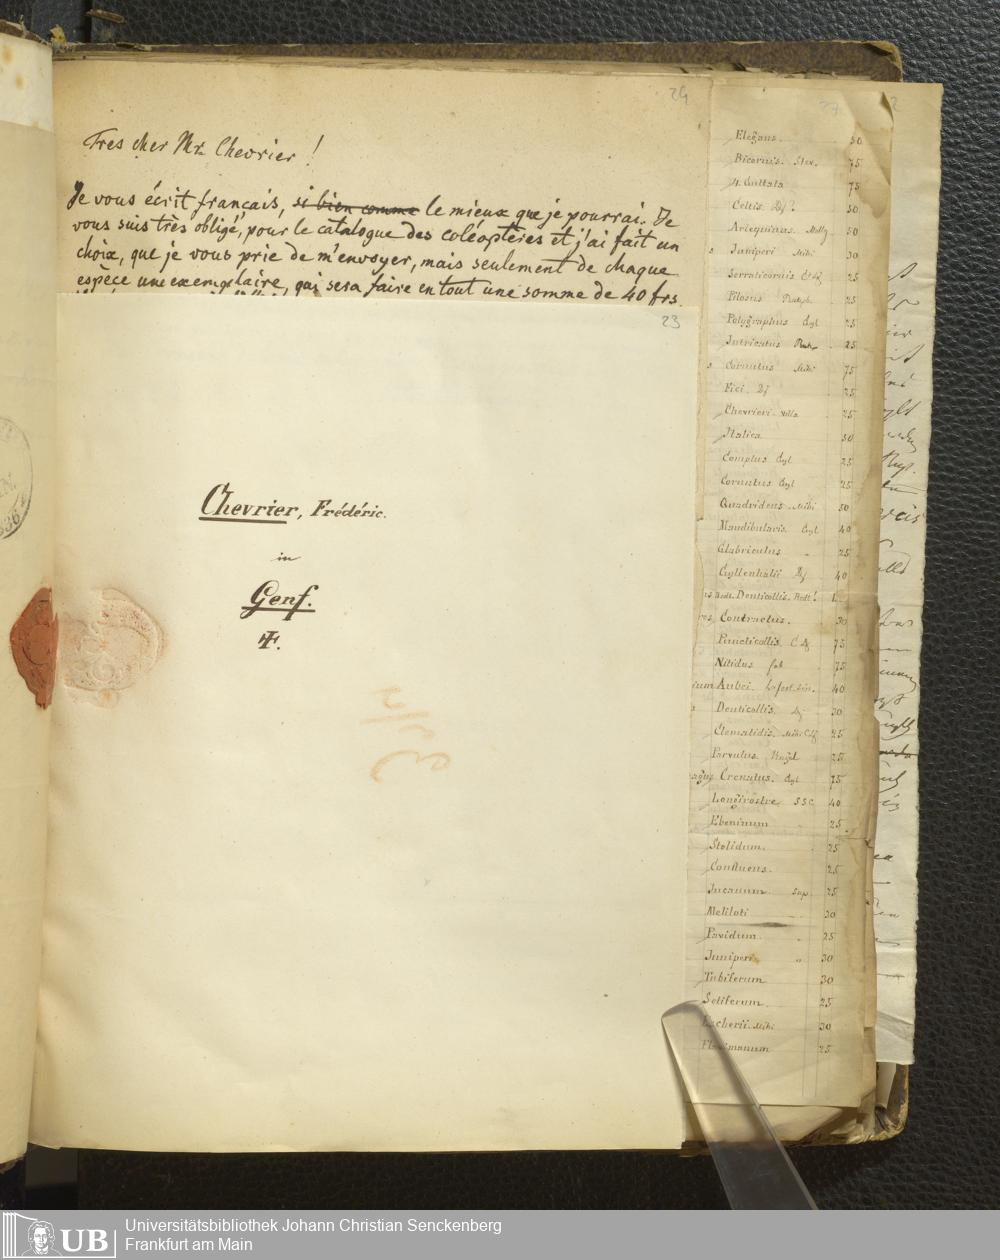 24
Tres cher Mr. Chevrier!
Je vous écrit français, si bien comme le mieux que je pourrai. Je
vous suis très obligé, pour le catalogue des coléoptères et j'ai fait un
choix, que je vous prie de m'envoyer, mais seulement de chaque
espèce une exemplaire, qui sera faire en tout une somme de 40 frs.
23
Chevrier, Frédéric.
in
Genf.
Elegans. 50
Bicornis. Stev. 75
4 Guttata 75
Celtis Dj? 50
Arlequinus. 50
Juniperi Mihi. 30
Serraticornis 25
Pilosus 25
Polygraphus Gyl 25
Intricatus 25
Cornutus Mihi 75
Fici. Dj 25
Chevrieri Villa 25
Italica 50
Complus Gyl 25
Cornutus Gyl 25
Quadridens Mihi 50
Mandibularis. Gyl 40
Glabriculus 25
Gyllenhalii Dj 40
Denticollis. Redt!
Contractus. 30
Puncticollis 75
Nitidus fab 75
Aubei. 40
Denticollis. Dj 30
Clematidis. Mihi 25
Parvulus 25
Crenatus. Gyl 75
Longirostre SSC 40
Ebeninum 25
Stolidum. 25
Confluens. 25
Incanum 25
Meliloti 30
Pavidum 25
Juniperi 30
Tubiferum 30
Setiferum 25
Escherii Mihi 30
Flavimanum 25
UB
Universitätsbibliothek Johann Christian Senckenberg
Frankfurt am Main